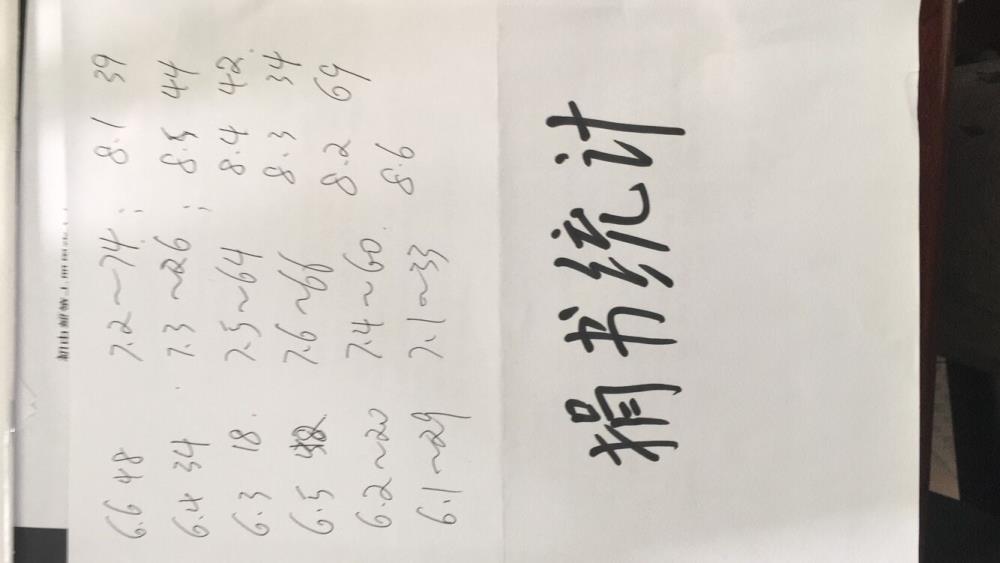 6.6 48 7.2~74; 8.1 39
6.4 34. 7.3~26; 8.5 44
6.3 18. 7.5~64 8.4 42.
6.5 7.6~66 8.3 34
6.2~20 7.4~60. 8.2 69
6.1~29 7.1~33 8.6
捐书统计